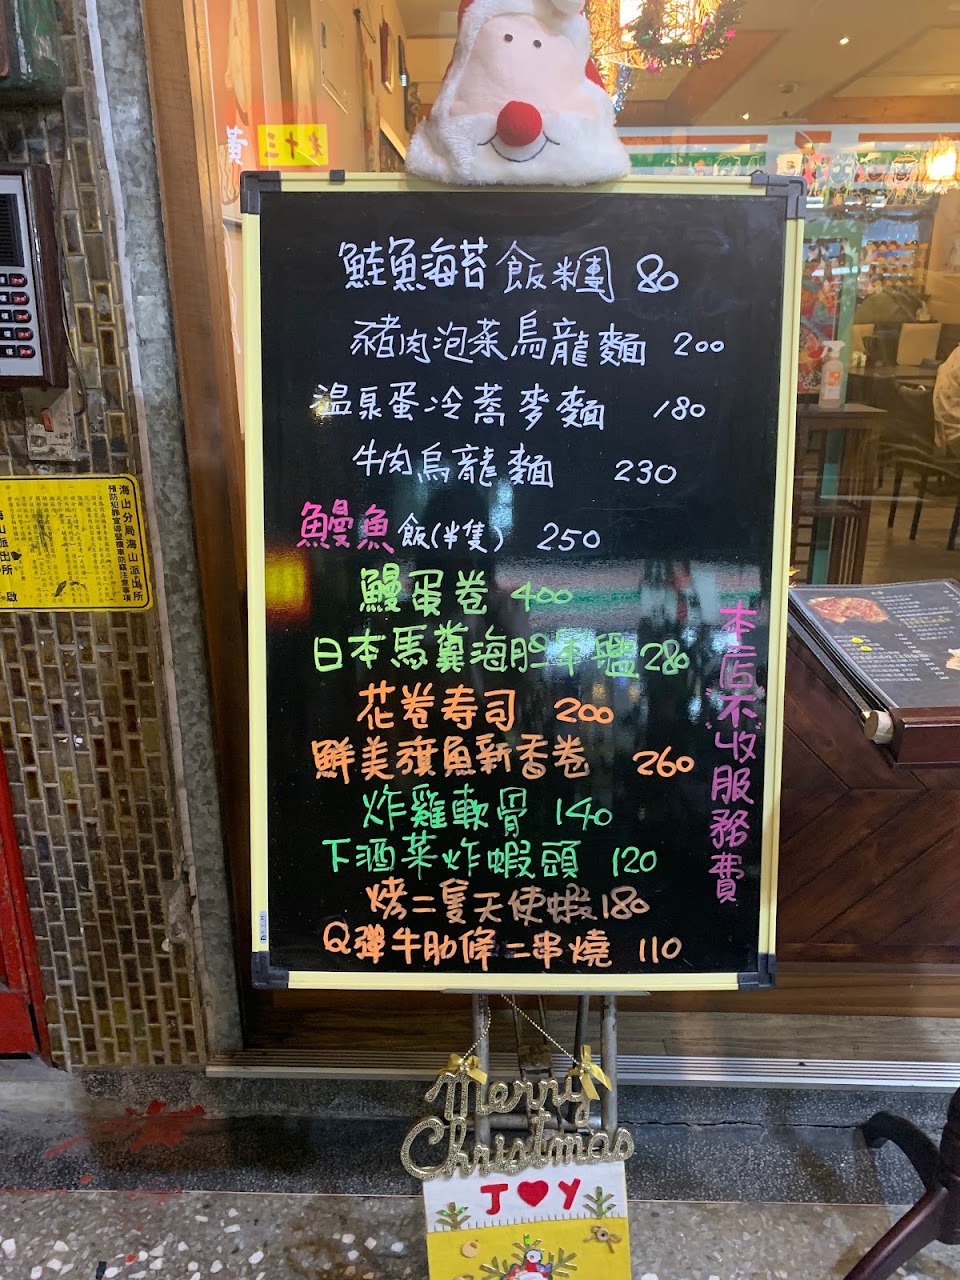 鮭魚海苔飯糰 80
豬肉泡菜烏龍麵 200
溫泉蛋冷蕎麥麵 180
牛肉烏龍麵 230
鰻魚飯(半隻) 250
鰻蛋卷 400
日本馬糞海膽軍艦 280
花卷壽司 200
鮮美旗魚新香卷 260
炸雞軟骨 140
下酒菜炸蝦頭 120
烤二隻天使蝦180
Q彈牛肋條二串燒 110
本店"不"收服務費
海山分局海山派出所
預防犯罪宣導暨機車防竊注意事項
Merry
Christmas
J❤Y